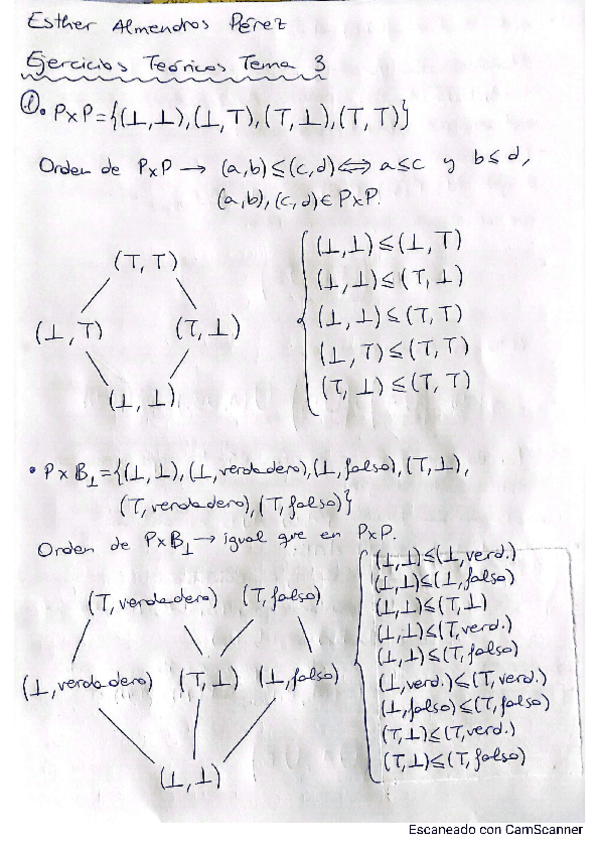 Esther Almendros Pérez
Ejercicios Teóricos Tema 3
①. P×P={(⊥,⊥),(⊥,T),(T,⊥),(T,T)}
Orden de P×P → (a,b)≤(c,d)⟺a≤c y b≤d,
(a,b),(c,d)∈P×P.
(T,T)
(⊥,T) (T,⊥)
(⊥,⊥)
(⊥,⊥)≤(⊥,T)
(⊥,⊥)≤(T,⊥)
(⊥,⊥)≤(T,T)
(⊥,T)≤(T,T)
(T,⊥)≤(T,T)
• P×B⊥={(⊥,⊥),(⊥,verdadero),(⊥,falso),(T,⊥),
(T,verdadero),(T,falso)}
Orden de P×B⊥→ igual que en P×P.
(T,verdadero) (T,falso)
(⊥,verdadero) (T,⊥) (⊥,falso)
(⊥,⊥)
(⊥,⊥)≤(⊥,verd.)
(⊥,⊥)≤(⊥,falso)
(⊥,⊥)≤(T,⊥)
(⊥,⊥)≤(T,verd.)
(⊥,⊥)≤(T,falso)
(⊥,verd.)≤(T,verd.)
(⊥,falso)≤(T,falso)
(T,⊥)≤(T,verd.)
(T,⊥)≤(T,falso)
Escaneado con CamScanner